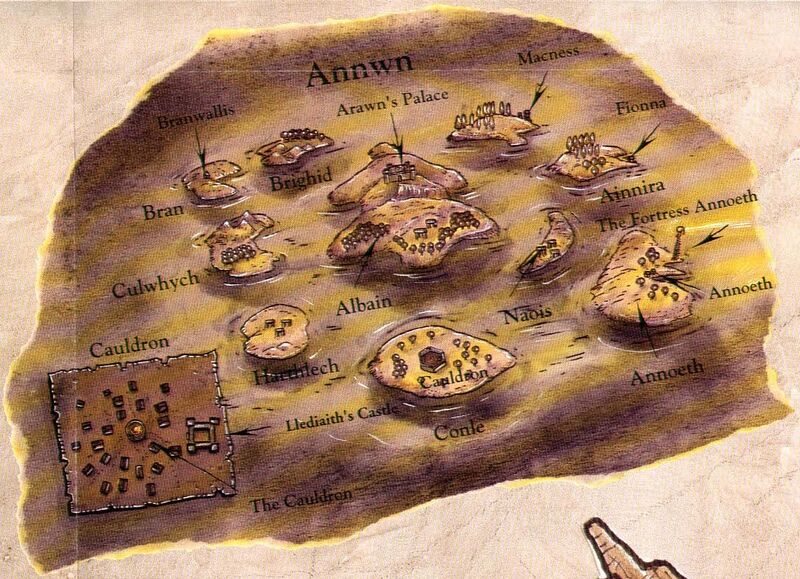 Annwn
Macness
Branwallis
Arawn's Palace
Fionna
Brighid
Ainnira
Bran
The Fortress Annoeth
Culwhych
Albain
Naois
Annoeth
Cauldron
Harddlech
Cauldron
Annoeth
Llediaith's Castle
Conle
The Cauldron